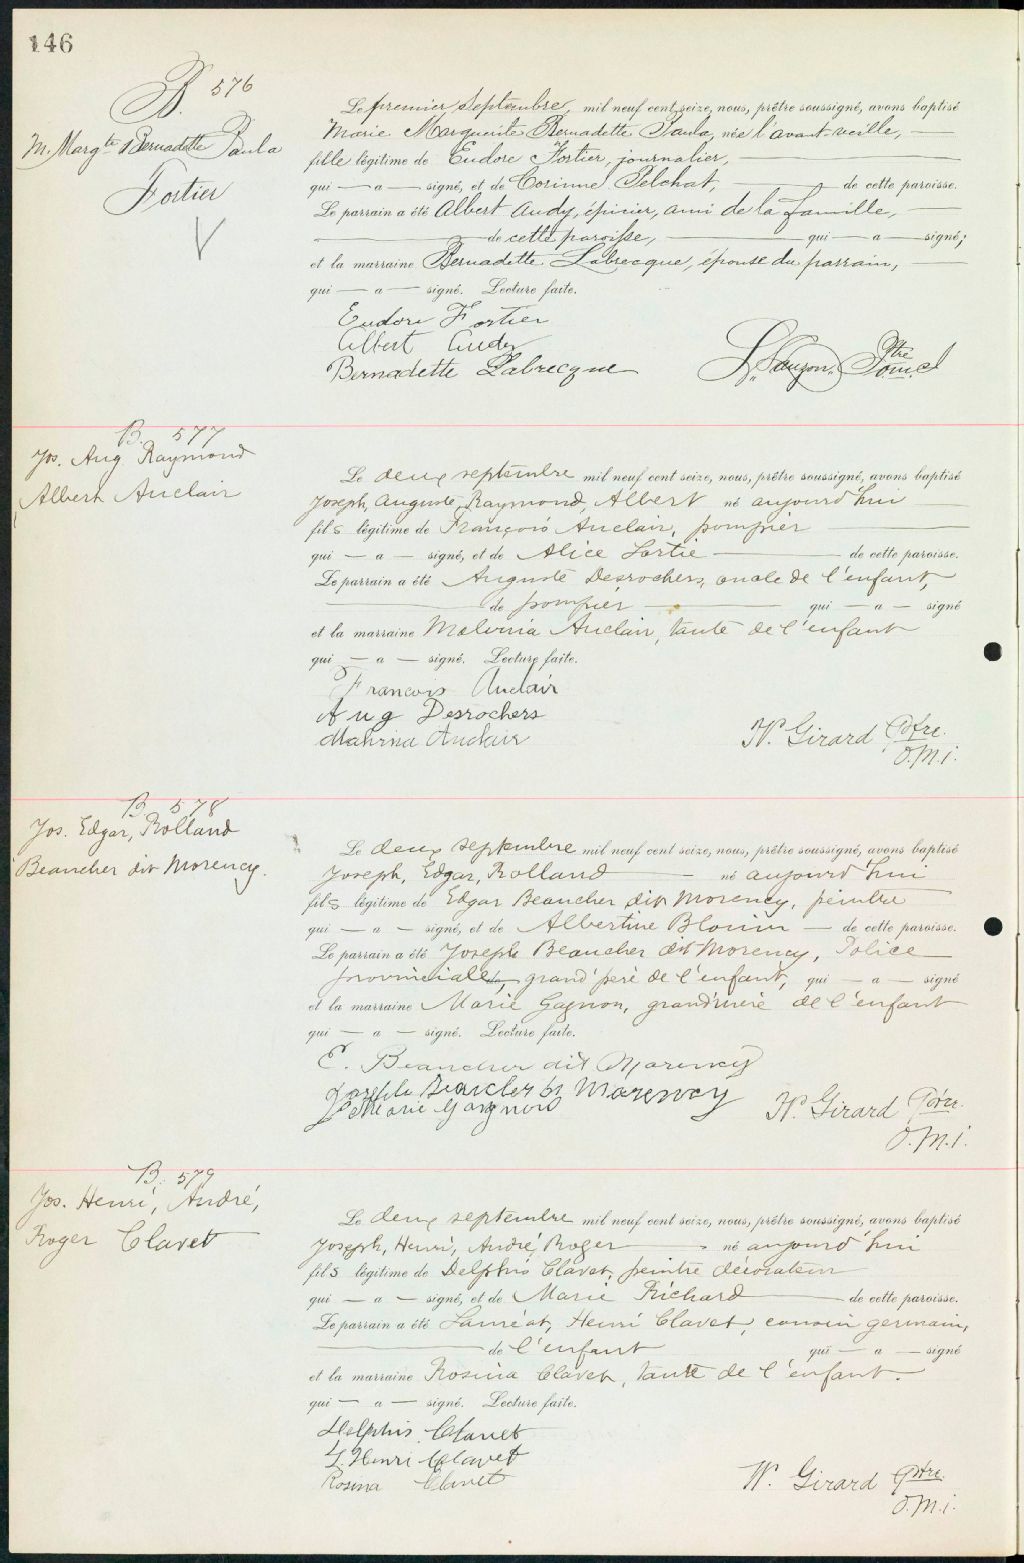 146
B. 576
M. Margte Bernadette Paula
Fortier
Le premier septembre, mil neuf cent seize, nous, prêtre soussigné, avons baptisé
Marie Marguerite Bernadette Paula, née l'avant-veille,
fille légitime de Eudore Fortier, journalier,
qui — a — signé, et de Corinne Pelchat, — de cette paroisse.
Le parrain a été Albert Audy, épicier, ami de la famille,
— de cette paroisse, — qui — a — signé;
et la marraine Bernadette Labrecque, épouse du parrain,
qui — a — signé. Lecture faite.
Eudore Fortier
Albert Audy
Bernadette Labrecque
Ptre
o.m.i
B. 577
Jos. Aug. Raymond
Albert Auclair
Le deux septembre mil neuf cent seize, nous, prêtre soussigné, avons baptisé
Joseph, Auguste, Raymond, Albert né aujourd'hui
fils légitime de François Auclair, pompier
qui — a — signé, et de Alice Lortie — de cette paroisse.
Le parrain a été Auguste Desrochers, oncle de l'enfant,
— de pompier — qui — a — signé
et la marraine Malvina Auclair, tante de l'enfant
qui — a — signé. Lecture faite.
François Auclair
Aug Desrochers
Malvina Auclair
W. Girard Ptre.
O.M.I.
B. 578
Jos. Edgar, Rolland
Beaucher dit Morency.
Le deux septembre mil neuf cent seize, nous, prêtre soussigné, avons baptisé
Joseph, Edgar, Rolland — né aujourd'hui
fils légitime de Edgar Beaucher dit Morency, peintre
qui — a — signé, et de Albertine Blouin — de cette paroisse.
Le parrain a été Joseph Beaucher dit Morency, Police
provinciale, grand'père de l'enfant, qui — a — signé
et la marraine Marie Gagnon, grand'mère de l'enfant
qui — a — signé. Lecture faite.
E. Beaucher dit Morency
Joseph Beaucler Morency
Marie Gagnon
W. Girard Ptre.
O.M.I.
B. 579
Jos. Henri, André,
Roger Clavet
Le deux septembre mil neuf cent seize, nous, prêtre soussigné, avons baptisé
Joseph, Henri, André, Roger — né aujourd'hui
fils légitime de Delphis Clavet, peintre décorateur
qui — a — signé, et de Marie Richard — de cette paroisse.
Le parrain a été Lauréat, Henri Clavet, cousin germain,
— de l'enfant qui — a — signé
et la marraine Rosina Clavet, tante de l'enfant.
qui — a — signé. Lecture faite.
Delphis Clavet
L. Henri Clavet
Rosina Clavet
W. Girard Ptre.
O.M.I.